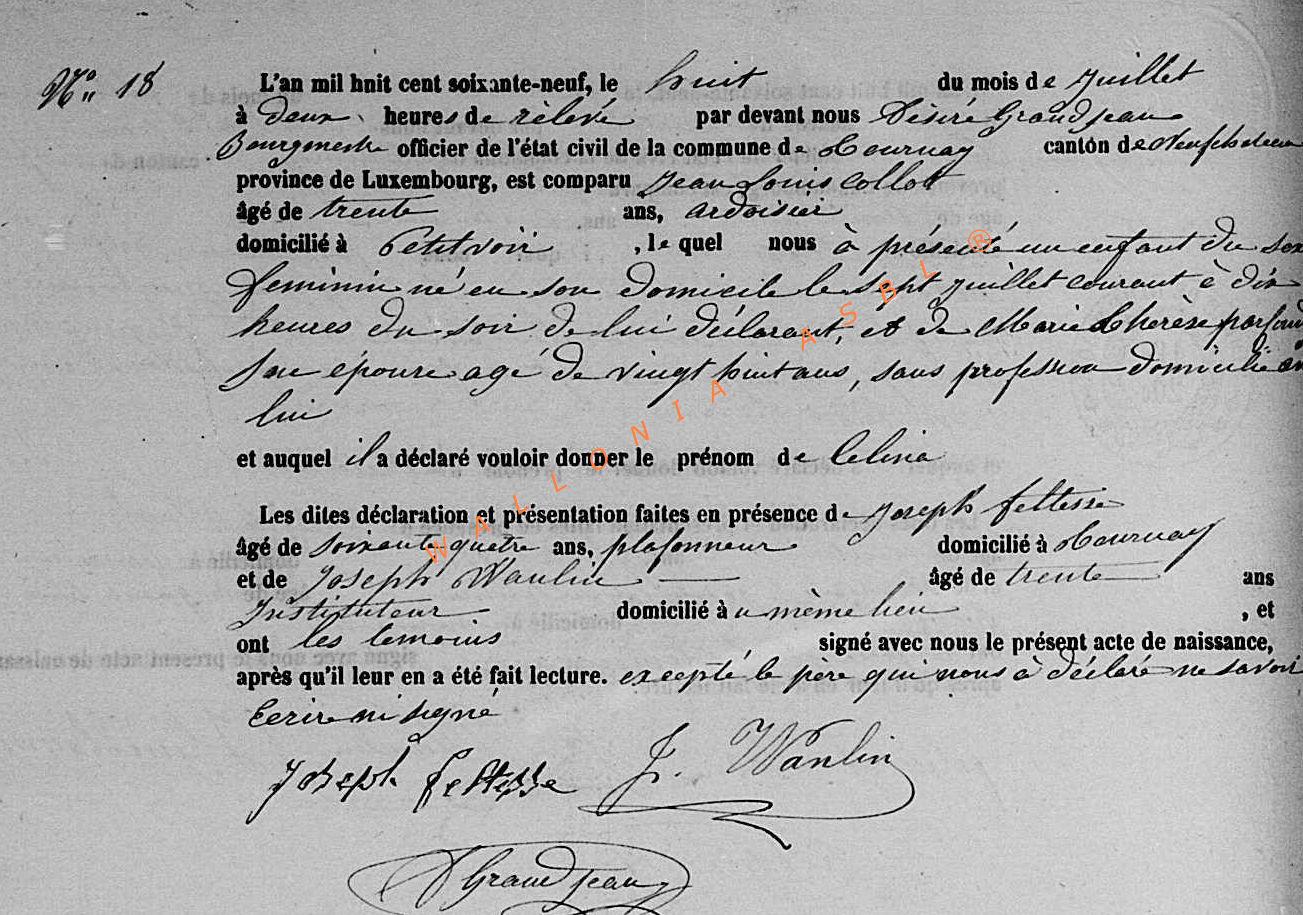 N° 18
L'an mil huit cent soixante-neuf, le huit du mois de juillet
à deux heures de rélevé par devant nous Désiré Grandjean
Bourgmestre officier de l'état civil de la commune de Tournay canton de Neufchateau
province de Luxembourg, est comparu Jean Louis Collott
âgé de trente ans, ardoisier
domicilié à Petitvoir , le quel nous à présenté un enfant du sexe
feminin né en son domicile le sept juillet courant à dix
heures du soir de lui déclarant, et de Marie Thérèse
Son épouse agé de vingt huit ans, sans profession domicilié
lui
et auquel il a déclaré vouloir donner le prénom de Celina
Les dites déclaration et présentation faites en présence de Joseph feltesse
âgé de soixante quatre ans, plafonneur domicilié à Tournay
et de Joseph Wanlin âgé de trente ans
Instituteur domicilié à u mème lieu , et
ont les temoins signé avec nous le présent acte de naissance,
après qu'il leur en a été fait lecture. excepté le père qui nous à déclaré ne savoir
Ecrire ni signé
Joseph feltesse J. Wanlin
DGrandjean
WALLONIA ASBL ®